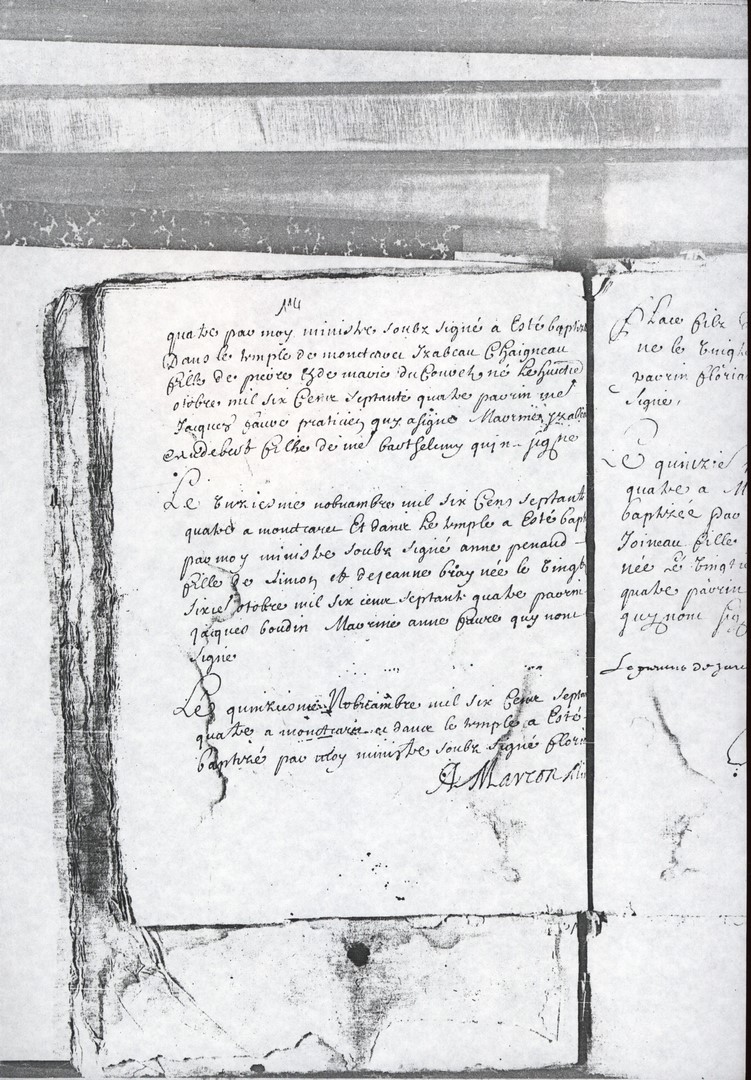 quatre par moy ministre soubz signé à Esté baptizé
Dans le temple de moncaret Izabeau Chaigneau
fille de pierre Et de marie du né Le huictie
otobre mil six Cens septante quatre parrin me
Jacques faure praticien quy a signé Marrine Izabeau
Audebert filhe de me barthelemy quy n signe
Le Unziesme nobuambre mil six Cens septante
quatre a moncaret Et dans Le temple a Esté bapt
par moy ministre soubz signé anne penaud
fille de Simon et de Jeanne bray née le Vingt
sixie otobre mil six cens septant quatre parrin
Jacques boudin Marrine anne faure quy nont
signé
Le quinziesme Nobuambre mil six Cens septan
quatre a moncaret et dans le temple a Esté
baptizé par Moy ministre soubz signé florin
A Marcon
place filz
ne le Vingt
parrin floria
signé,
Le quinzie
quatre a M
baptzée par
Joineau fille
née Le Vingt
quatre parrin
quy nont sig